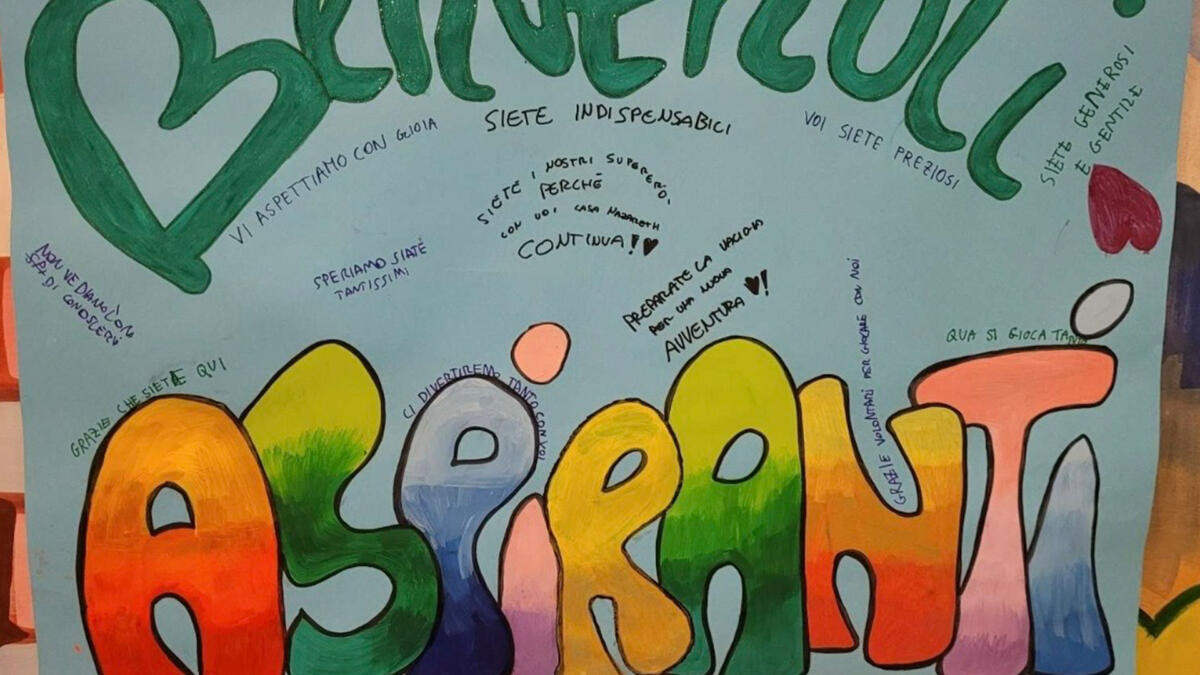 BENVENUTI
SIETE INDISPENSABILI
VI ASPETTIAMO CON GIOIA
VOI SIETE PREZIOSI
SIETE GENEROSI
E GENTILE
SIETE I NOSTRI SUPEREROI,
PERCHÉ
CON VOI CASA NAZARETH
CONTINUA!
NON VEDIAMO L'ORA
DI CONOSCERVI
SPERIAMO SIATE
TANTISSIMI
PREPARATE LA VALIGIA
PER UNA NUOVA
AVVENTURA !
GRAZIE CHE SIETE QUI
CI DIVERTIREMO TANTO CON VOI
GRAZIE VOLONTARI PER GIOCARE CON NOI
QUA SI GIOCA
ASPIRANTI